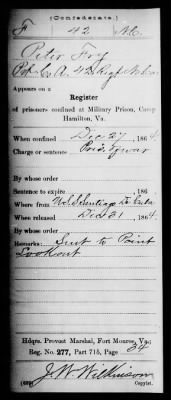 (Confederate.)
F 42 N.C.
Peter Fry
Pvt, Co A, 42 Reg't N. Caro
Appears on a
Register
of prisoners confined at Military Prison, Camp
Hamilton, Va.
When confined Dec 27, 1864.
Charge or sentence Pris of war
By whose order
Sentence to expire , 186 .
Where from U.S.S. Santiago De Cuba
When released Dec 31, 1864.
By whose order
Remarks: Sent to Point
Lookout
Hdqrs. Provost Marshal, Fort Monroe, Va;
Reg. No. 277, Part 715, Page 34
J. W. Wilkinson
Copyist.